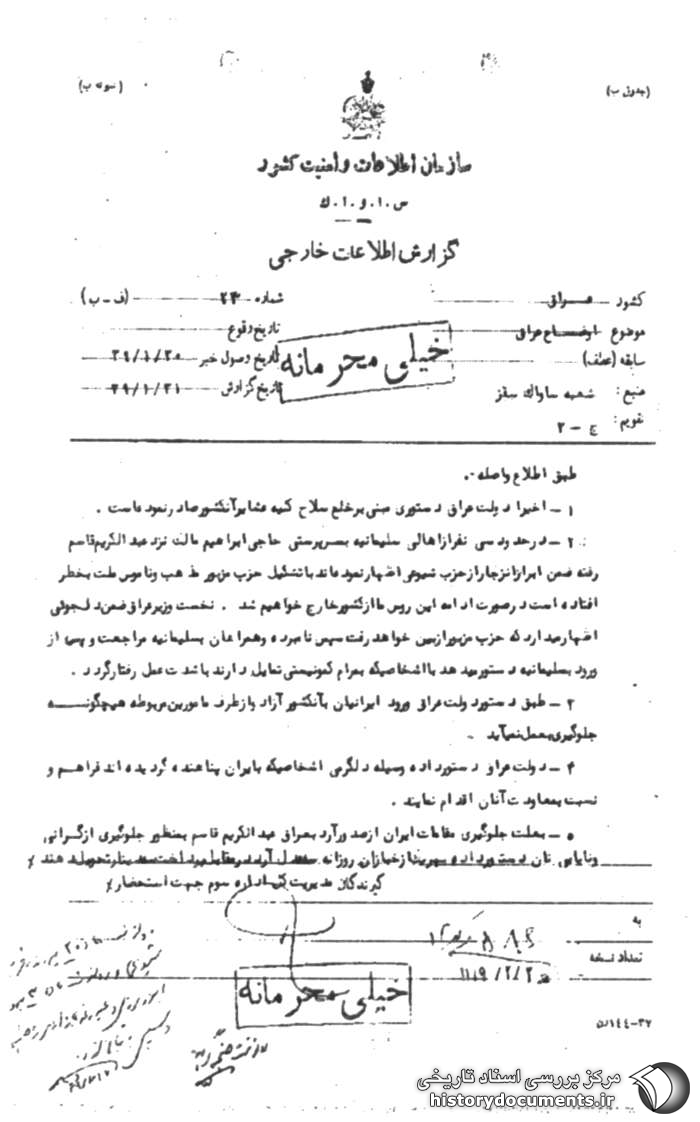 (جدول ب)
(نمونه ب)
سازمان اطلاعات و امنیت کشور
س.ا.و.ا.ک
گزارش اطلاعات خارجی
کشور عراق
شماره ۲۳ (ف - ب)
موضوع اوضاع عراق
تاریخ وقوع
سابقه (عطف)
تاریخ وصول خبر ۳۹/۱/۲۰
منبع: شعبه ساواک سقز
تاریخ گزارش ۳۹/۱/۳۱
تقویم: ج - ۲
خیلی محرمانه
طبق اطلاع واصله -.
۱ - اخیرا دولت عراق دستوری مبنی بر خلع سلاح کلیه عشایر آنکشور صادر نموده است .
۲ - در حدود سی نفر از اهالی سلیمانیه بسرپرستی حاجی ابراهیم مالت نزد عبدالکریم قاسم
رفته ضمن ابراز انزجار از حزب شیوعی اظهار نموده اند با تشکیل حزب مزبور مذهب و ناموس ملت بخطر
افتاده است در صورت ادامه این روس ما از کشور خارج خواهیم شد . نخست وزیر عراق ضمن دلجوئی
اظهار میدارد که حزب مزبور از بین خواهد رفت سپس نامبرده و همراهان بسلیمانیه مراجعت و پس از
ورود بسلیمانیه دستور میدهد با اشخاصیکه بمرام کمونیستی تمایل دارند باشدت عمل رفتار گردد .
۳ - طبق دستور دولت عراق ورود ایرانیان بآنکشور آزاد و از طرف مامورین مربوطه هیچگونه
جلوگیری بعمل نمیآید .
۴ - دولت عراق دستور داده وسیله دلگرمی اشخاصیکه بایران پناهنده گردیده اند فراهم و
نسبت بمعاودت آنان اقدام نمایند .
۵ - بعلت جلوگیری مقامات ایران از صدور آرد بعراق عبدالکریم قاسم بمنظور جلوگیری از گرانی
ونایابی نان دستور داده بهریک از خبازان روزانه آرد در مقابل پرداخت دینار تحویل دهند ٪
گیرندگان مدیریت کل اداره سوم جهت استحضار ٪
به
تعداد نسخه
خیلی محرمانه
۵/۱۴۴-۳۷
مرکز بررسی اسناد تاریخی
historydocuments.ir